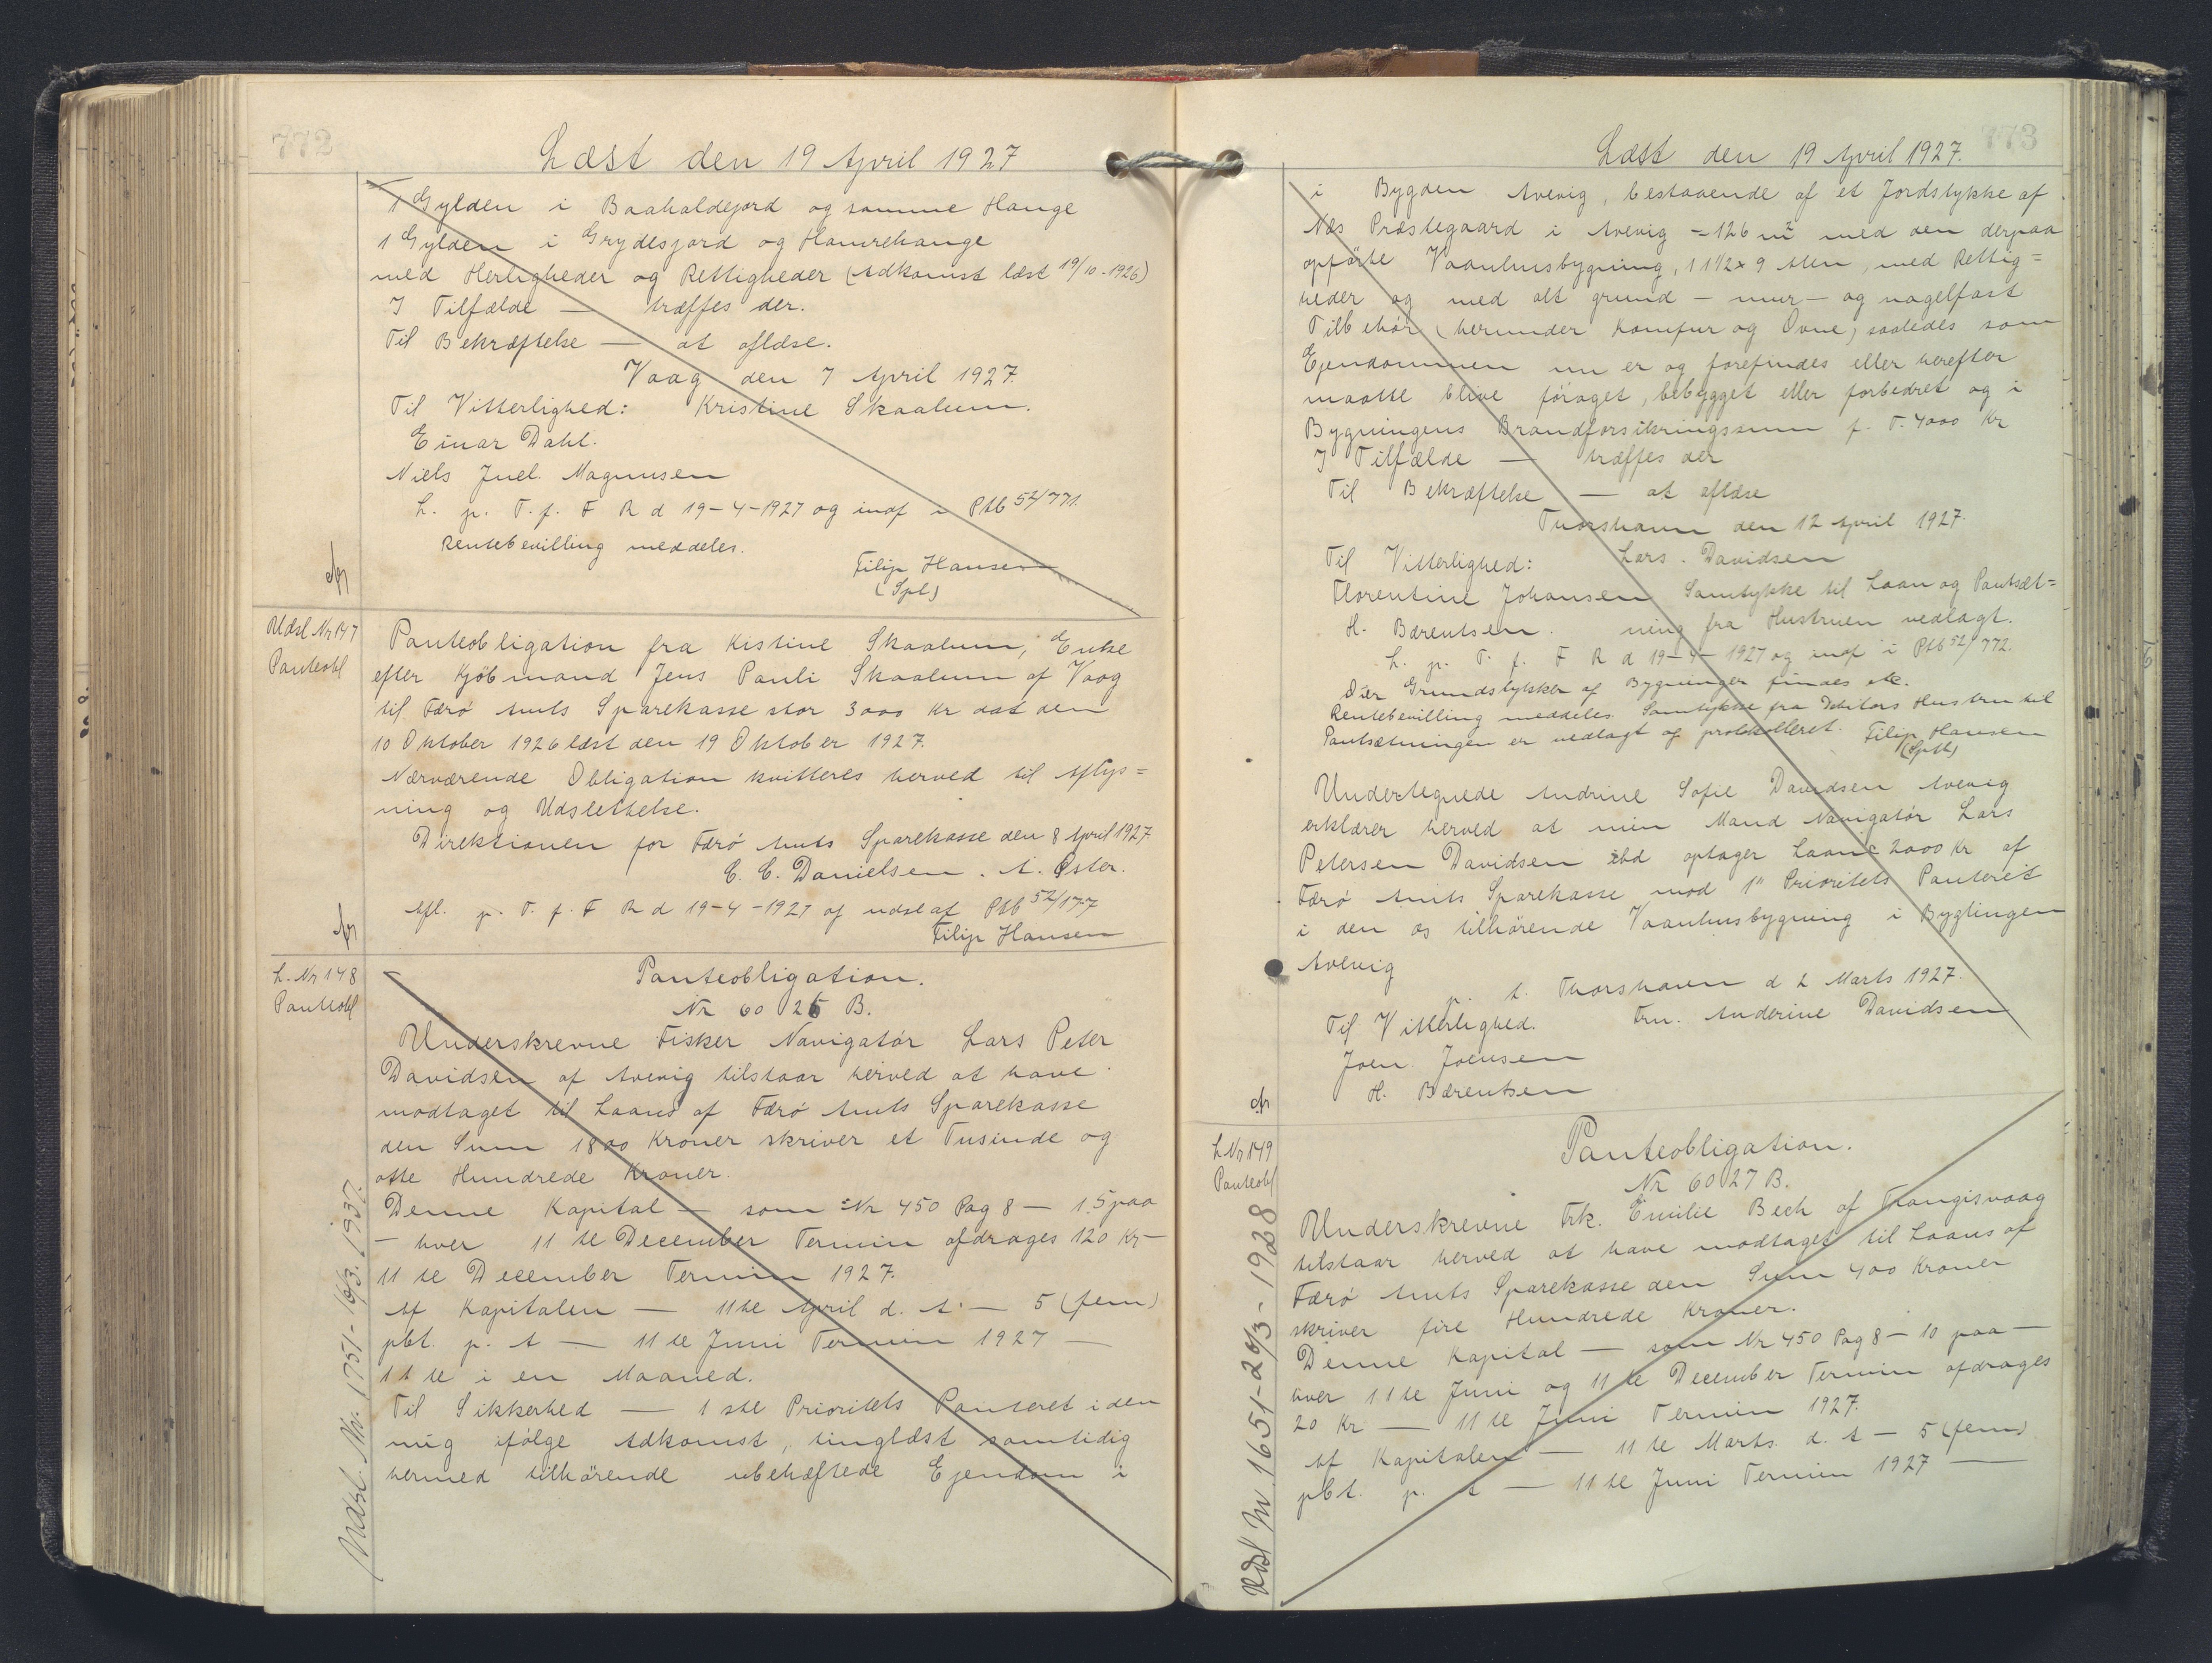 772
Læst den 19 April 1927
1 Gylden i Baahaldejord og samme Hauge
1 Gylden i Grydesjord og Hamrehauge
med Herligheder og Rettigheder (Adkomst læst 19/10-1926)
I Tilfælde — træffes der.
Til Bekræftelse — at aflæse.
Vaag den 7 April 1927.
Til Vitterlighed: Kristine Skaalum.
Einar Dahl.
Niels Juel. Magnusen
L. p. T. f. F R d 19-4-1927 og indf i Ptb 52/771.
Rentebevilling meddeles.
Filip Hansen
(Spl)
Udsl Nr 147
Panteobl
Panteobligation fra Kistine Skaalum, Enke
efter Kjöbmand Jens Pauli Skaalum af Vaag
til Færö Amts Sparekasse stor 3000 Kr dat den
10 Oktober 1926 læst den 19 Oktober 1927.
Nærværende Obligation kvitteres herved til Aflys=
ning og Udslettelse.
Direktionen for Færö Amts Sparekasse den 8 April 1927
C. C. Danielsen. A. Øster.
Afl. p. T. f. F R d 19-4-1927 og udsl af Ptb 52/177
Filip Hansen
L. Nr 148
Panteobl
Panteobligation.
Nr 60 26 B.
Underskrevne Fisker Navigatör Lars Peter
Davidsen af Avevig tilstaar herved at have
modtaget til Laans af Færö Amts Sparekasse
den Sum 1800 Kroner skriver et Tusinde og
otte Hundrede Kroner.
Denne Kapital — som Nr 450 Pag 8 — 1. 5 paa
— hver 11 te December Termin afdrages 120 Kr —
11 te December Termin 1927.
Af Kapitalen — 11te April d. A. — 5 (fem)
pct. p. A — 11 te Juni Termin 1927 —
11 te i en Maaned.
Til Sikkerhed — 1 ste Prioritets Panteret i den
mig ifölge Adkomst, tinglæst samtidig
hermed tilhörende ubehæftede Ejendom i
Udsl. Nr. 1751-16/3. 1937.
773
Læst den 19 April 1927.
i Bygden Avevig, bestaaende af et Jordstykke af
Næs Præstegaard i Avevig = 126 m2 med den derpaa
opförte Vaanhusbygning, 11 1/2 x 9 Alen, med Rettig=
heder og med alt grund — muur — og nagelfast
Tilbehör (herunder Komfur og Ovne) saaledes som
Ejendommen nu er og forefindes eller herefter
maatte blive föroget, bebygget eller forbedret og i
Bygningens Brandforsikringssum p. T. 4000 Kr
I Tilfælde — træffes der
Til Bekræftelse — at aflæse
Thorshavn den 12 April 1927.
Til Vitterlighed: Lars. Davidsen
Florentine Johansen Samtykke til Laan og Pantsæt=
H. Bærentsen. ning fra Hustruen vedlagt.
L. p. T. f. F R d 19-4-1927 og indf i Ptb 52/772.
Der Grundstykker af Bygninger findes etc.
Rentebevilling meddeles Samtykke fra Debitors Hustru til
Pantsætningen er vedlagt og protokolleret. Filip Hansen
(Splt)
Undertegnede Andrine Sofie Davidsen Avevig
erklærer herved at min Mand Navigatör Lars
Petersen Davidsen ibd optager Laane 2000 Kr af
Færö Amts Sparekasse mod 1" Prioritets Panteret
i den os tilhörende Vaanhusbygning i Bygtingen
Avevig
p. t. Thorshavn d 2 Marts 1927.
Til Vitterlighed. Fru. Anderine Davidsen
Joen Joensen
H. Bærentsen
L Nr 149
Panteobl
Panteobligation.
Nr 60 27 B.
Underskrevne Frk. Emilie Bech af Trangisvaag
tilstaar herved at have modtaget til Laans af
Færö Amts Sparekasse den Sum 400 Kroner
skriver fire Hundrede Kroner.
Denne Kapital — som Nr 450 Pag 8 — 10 paa —
hver 11 te Juni og 11 te December Termin afdrages
20 Kr — 11 te Juni Termin 1927.
Af Kapitalen — 11 te Marts d. A — 5 (fem)
pct. p. A — 11 te Juni Termin 1927 —
Udsl Nr. 1651-20/3-1928